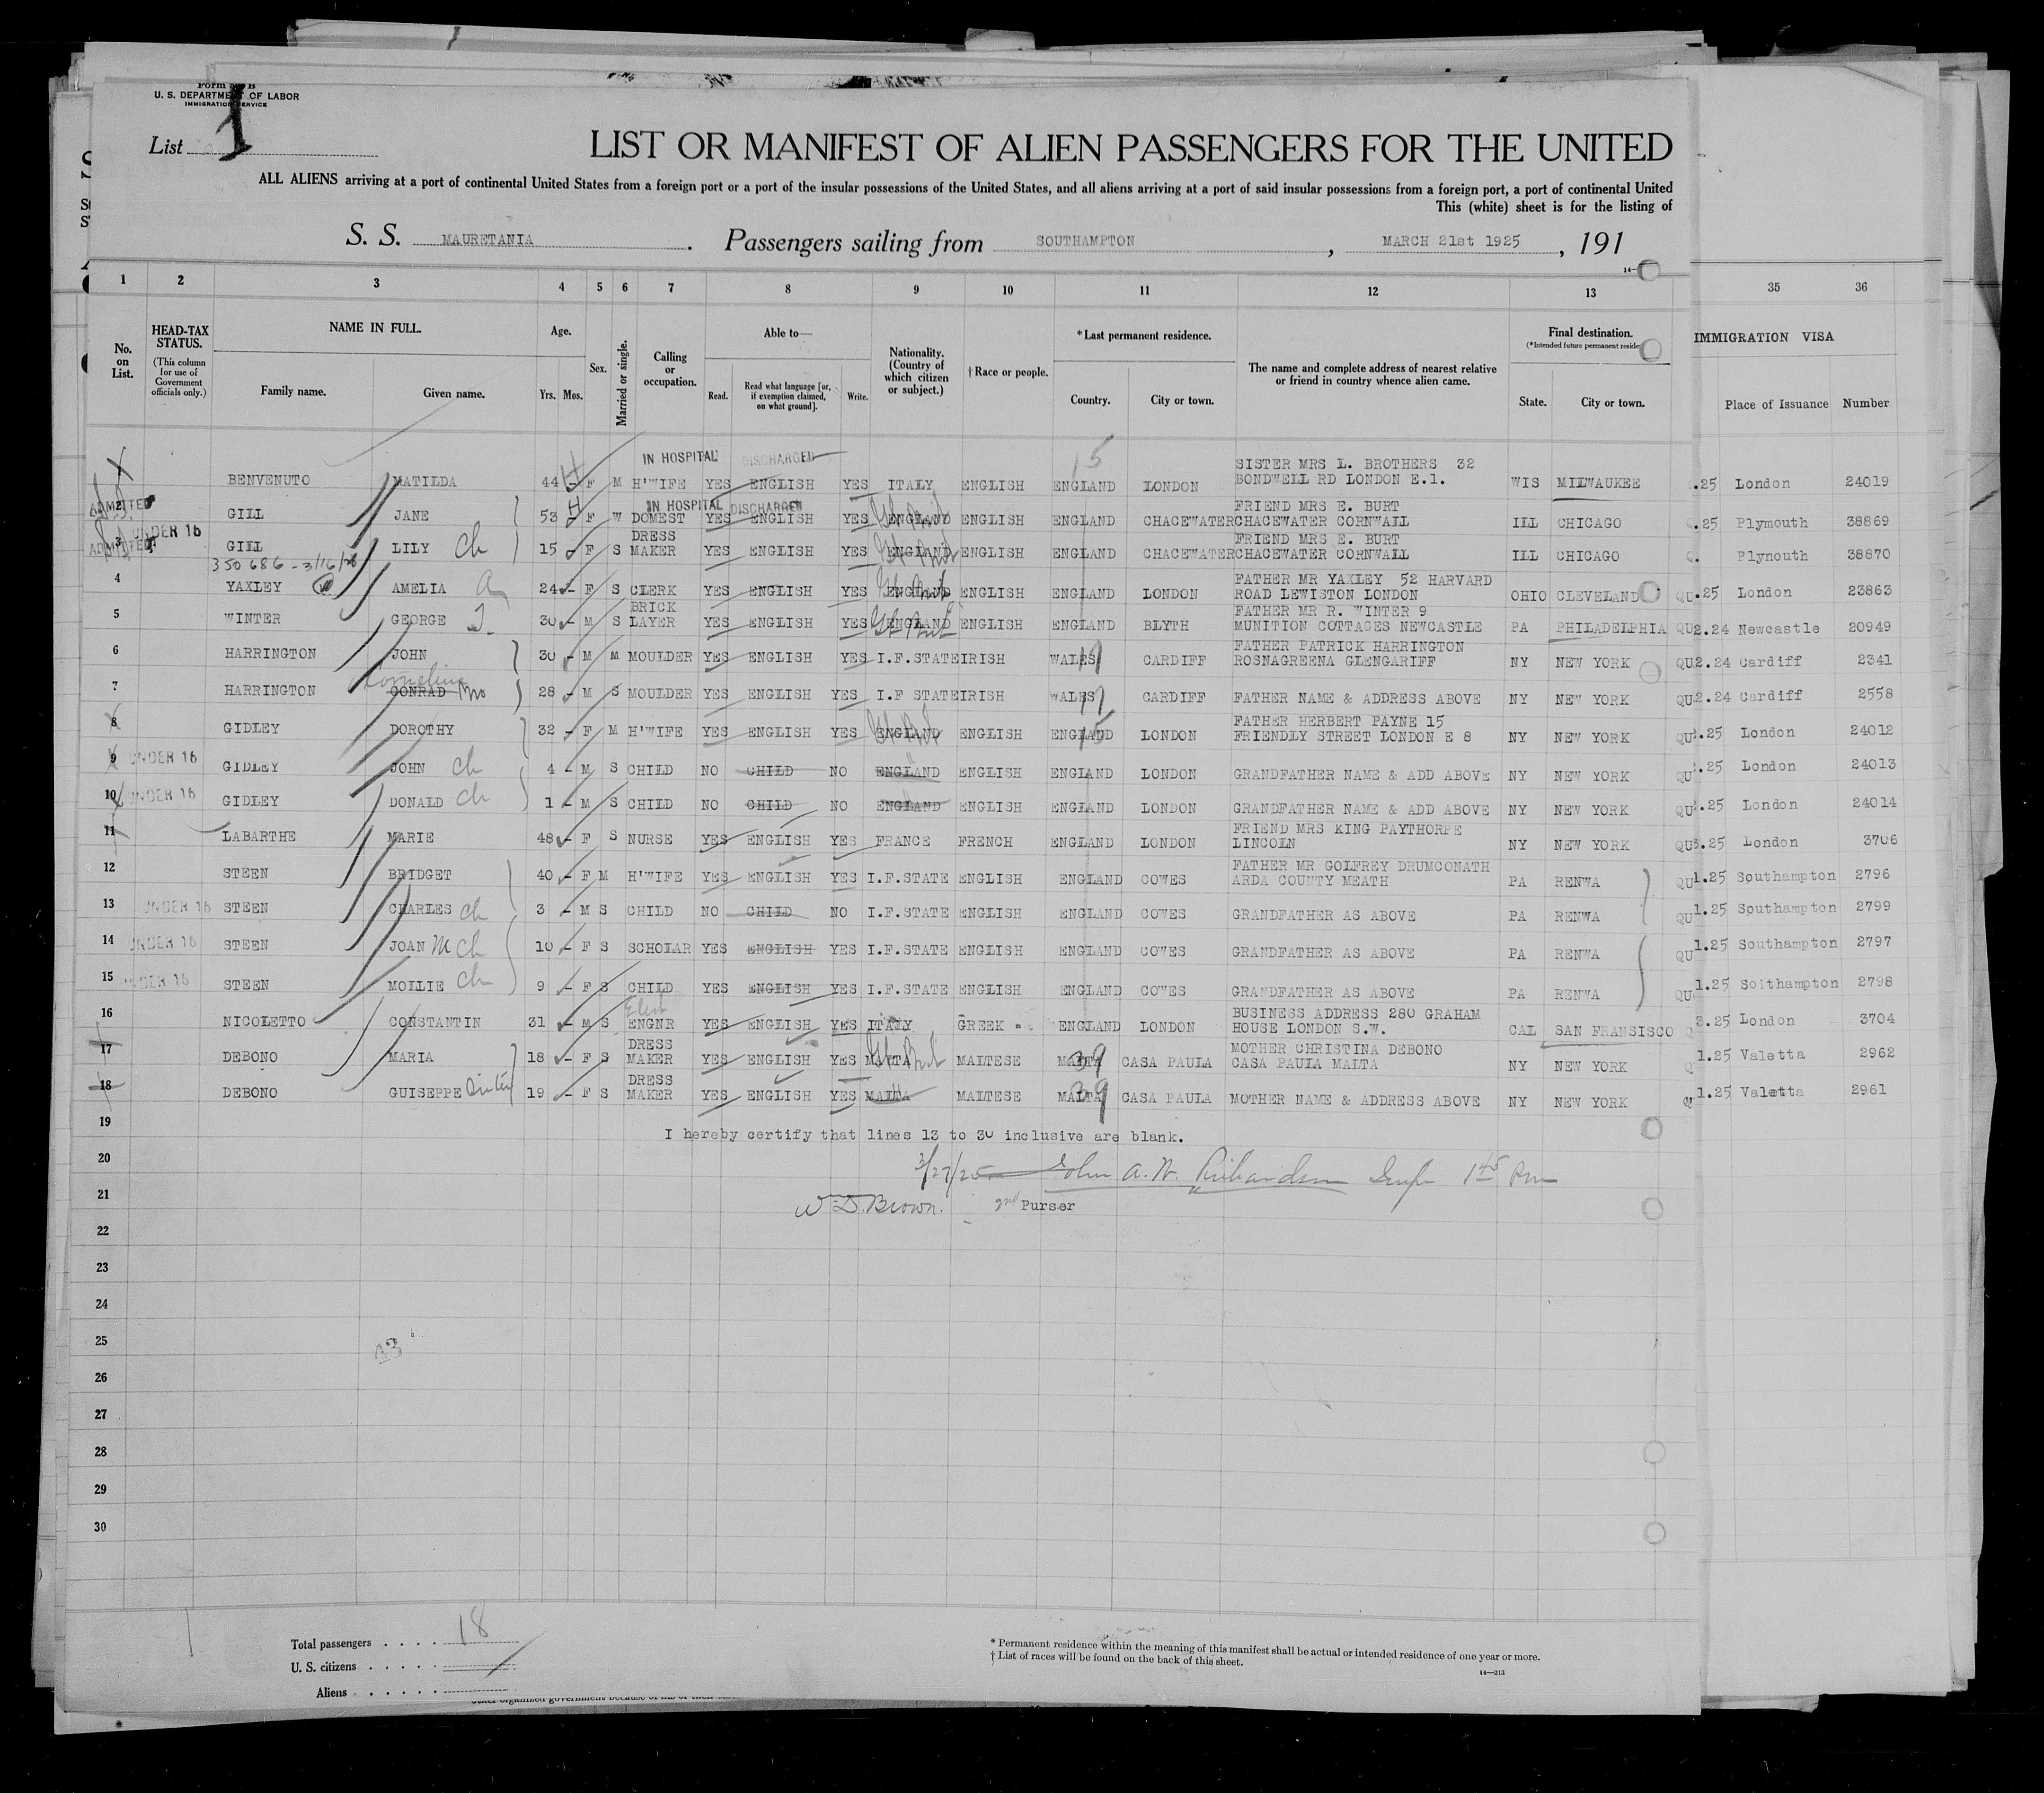 Form B
U. S. DEPARTMENT OF LABOR
IMMIGRATION SERVICE
List 1
LIST OR MANIFEST OF ALIEN PASSENGERS FOR THE UNITED
ALL ALIENS arriving at a port of continental United States from a foreign port or a port of the insular possessions of the United States, and all aliens arriving at a port of said insular possessions from a foreign port, a port of continental United
This (white) sheet is for the listing of
S. S. MAURETANIA. Passengers sailing from SOUTHAMPTON, MARCH 21st 1925, 191
1 2 3 4 5 6 7 8 9 10 11 12 13 35 36
No. on List.
HEAD-TAX STATUS. (This column for use of Government officials only.)
NAME IN FULL. Family name. Given name.
Age. Yrs. Mos.
Sex.
Married or single.
Calling or occupation.
Able to— Read. Read what language [or, if exemption claimed, on what ground]. Write.
Nationality. (Country of which citizen or subject.)
† Race or people.
*Last permanent residence. Country. City or town.
The name and complete address of nearest relative or friend in country whence alien came.
Final destination. (*Intended future permanent reside State. City or town.
IMMIGRATION VISA
Place of Issuance Number
IN HOSPITAL DISCHARGED 15
BENVENUTO MATILDA 44 F M H'WIFE YES ENGLISH YES ITALY ENGLISH ENGLAND LONDON SISTER MRS L. BROTHERS 32 BONDWELL RD LONDON E.1. WIS MILWAUKEE .25 London 24019
ADMITTED IN HOSPITAL DISCHARGED
2 GILL JANE 53 F W DOMEST YES ENGLISH YES ENGLAND Gt Brit ENGLISH ENGLAND CHACEWATER FRIEND MRS E. BURT CHACEWATER CORNWALL ILL CHICAGO .25 Plymouth 38869
ADMITTED UNDER 16
3 GILL LILY ch 15 F S DRESS MAKER YES ENGLISH YES ENGLAND Gt Brit ENGLISH ENGLAND CHACEWATER FRIEND MRS E. BURT CHACEWATER CORNWALL ILL CHICAGO Plynouth 38870
350686 - 3/16/28
4 YAXLEY AMELIA 24 F S CLERK YES ENGLISH YES ENGLAND Gt Brit ENGLISH ENGLAND LONDON FATHER MR YAXLEY 52 HARVARD ROAD LEWISTON LONDON OHIO CLEVELAND QU .25 London 23863
5 WINTER GEORGE 30 M S BRICK LAYER YES ENGLISH YES ENGLAND Gt Brit ENGLISH ENGLAND BLYTH FATHER MR R. WINTER 9 MUNITION COTTAGES NEWCASTLE PA PHILADELPHIA QU 2.24 Newcastle 20949
6 HARRINGTON JOHN 30 M M MOULDER YES ENGLISH YES I.F.STATE IRISH WALES CARDIFF FATHER PATRICK HARRINGTON ROSNAGREENA GLENGARIFF NY NEW YORK QU 2.24 Cardiff 2341
7 HARRINGTON CONRAD Cornelius bro 28 M S MOULDER YES ENGLISH YES I.F STATE IRISH WALES CARDIFF FATHER NAME & ADDRESS ABOVE NY NEW YORK QU 2.24 Cardiff 2558
8 GIDLEY DOROTHY 32 F M H'WIFE YES ENGLISH YES ENGLAND Gt Brit ENGLISH ENGLAND 15 LONDON FATHER HERBERT PAYNE 15 FRIENDLY STREET LONDON E 8 NY NEW YORK QU .25 London 24012
9 UNDER 16 GIDLEY JOHN ch 4 M S CHILD NO CHILD NO ENGLAND ENGLISH ENGLAND LONDON GRANDFATHER NAME & ADD ABOVE NY NEW YORK QU .25 London 24013
10 UNDER 16 GIDLEY DONALD ch 1 M S CHILD NO CHILD NO ENGLAND ENGLISH ENGLAND LONDON GRANDFATHER NAME & ADD ABOVE NY NEW YORK QU .25 London 24014
11 LABARTHE MARIE 48 F S NURSE YES ENGLISH YES FRANCE FRENCH ENGLAND LONDON FRIEND MRS KING PAYTHORPE LINCOLN NY NEW YORK QU 3.25 London 3706
12 STEEN BRIDGET 40 F M H'WIFE YES ENGLISH YES I.F.STATE ENGLISH ENGLAND COWES FATHER MR GOLFREY DRUMCONATH ARDA COUNTY MEATH PA RENWA QU 1.25 Southampton 2796
13 UNDER 16 STEEN CHARLES ch 3 M S CHILD NO CHILD NO I.F.STATE ENGLISH ENGLAND COWES GRANDFATHER AS ABOVE PA RENWA QU 1.25 Southampton 2799
14 UNDER 16 STEEN JOAN M ch 10 F S SCHOLAR YES ENGLISH YES I.F.STATE ENGLISH ENGLAND COWES GRANDFATHER AS ABOVE PA RENWA QU 1.25 Southampton 2797
15 UNDER 16 STEEN MOLLIE ch 9 F S CHILD YES ENGLISH YES I.F.STATE ENGLISH ENGLAND COWES GRANDFATHER AS ABOVE PA RENWA QU 1.25 Soithampton 2798
16 NICOLETTO CONSTANTIN 31 M S Elect ENGNR YES ENGLISH YES ITALY GREEK ENGLAND LONDON BUSINESS ADDRESS 280 GRAHAM HOUSE LONDON S.W. CAL SAN FRANSISCO 3.25 London 3704
17 DEBONO MARIA 18 F S DRESS MAKER YES ENGLISH YES MALTA Gt Brit MALTESE MALTA 39 CASA PAULA MOTHER CHRISTINA DEBONO CASA PAULA MALTA NY NEW YORK 1.25 Valetta 2962
18 DEBONO GUISEPPE Sister 19 F S DRESS MAKER YES ENGLISH YES MALTA MALTESE MALTA 39 CASA PAULA MOTHER NAME & ADDRESS ABOVE NY NEW YORK 1.25 Valetta 2961
19 I hereby certify that lines 13 to 30 inclusive are blank.
20 3/27/25 John A. W. Richardson Insp 1 45 Pm
21 W D. Brown. 2nd Purser
22
23
24
25
26
27
28
29
30
Total passengers . . . . 18
U. S. citizens . . . . .
Aliens . . . . .
* Permanent residence within the meaning of this manifest shall be actual or intended residence of one year or more.
† List of races will be found on the back of this sheet.
14—213